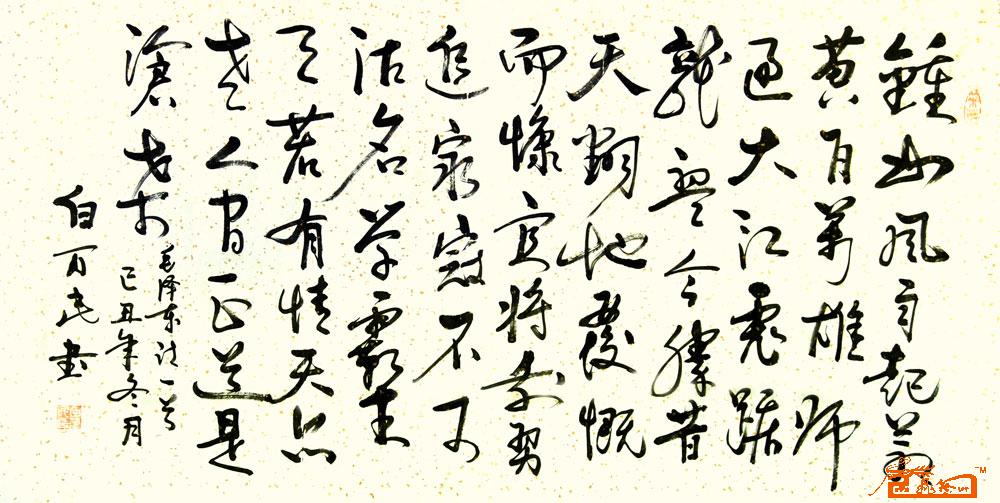 鍾山風雨起蒼
黄百萬雄师
過大江虎踞
龍盤今勝昔
天翻地覆慨
而慷宜将剩勇
追窮寇不可
沽名学霸王
天若有情天亦
老人间正道是
滄桑
毛泽东诗一首
己丑年冬月
白万民书